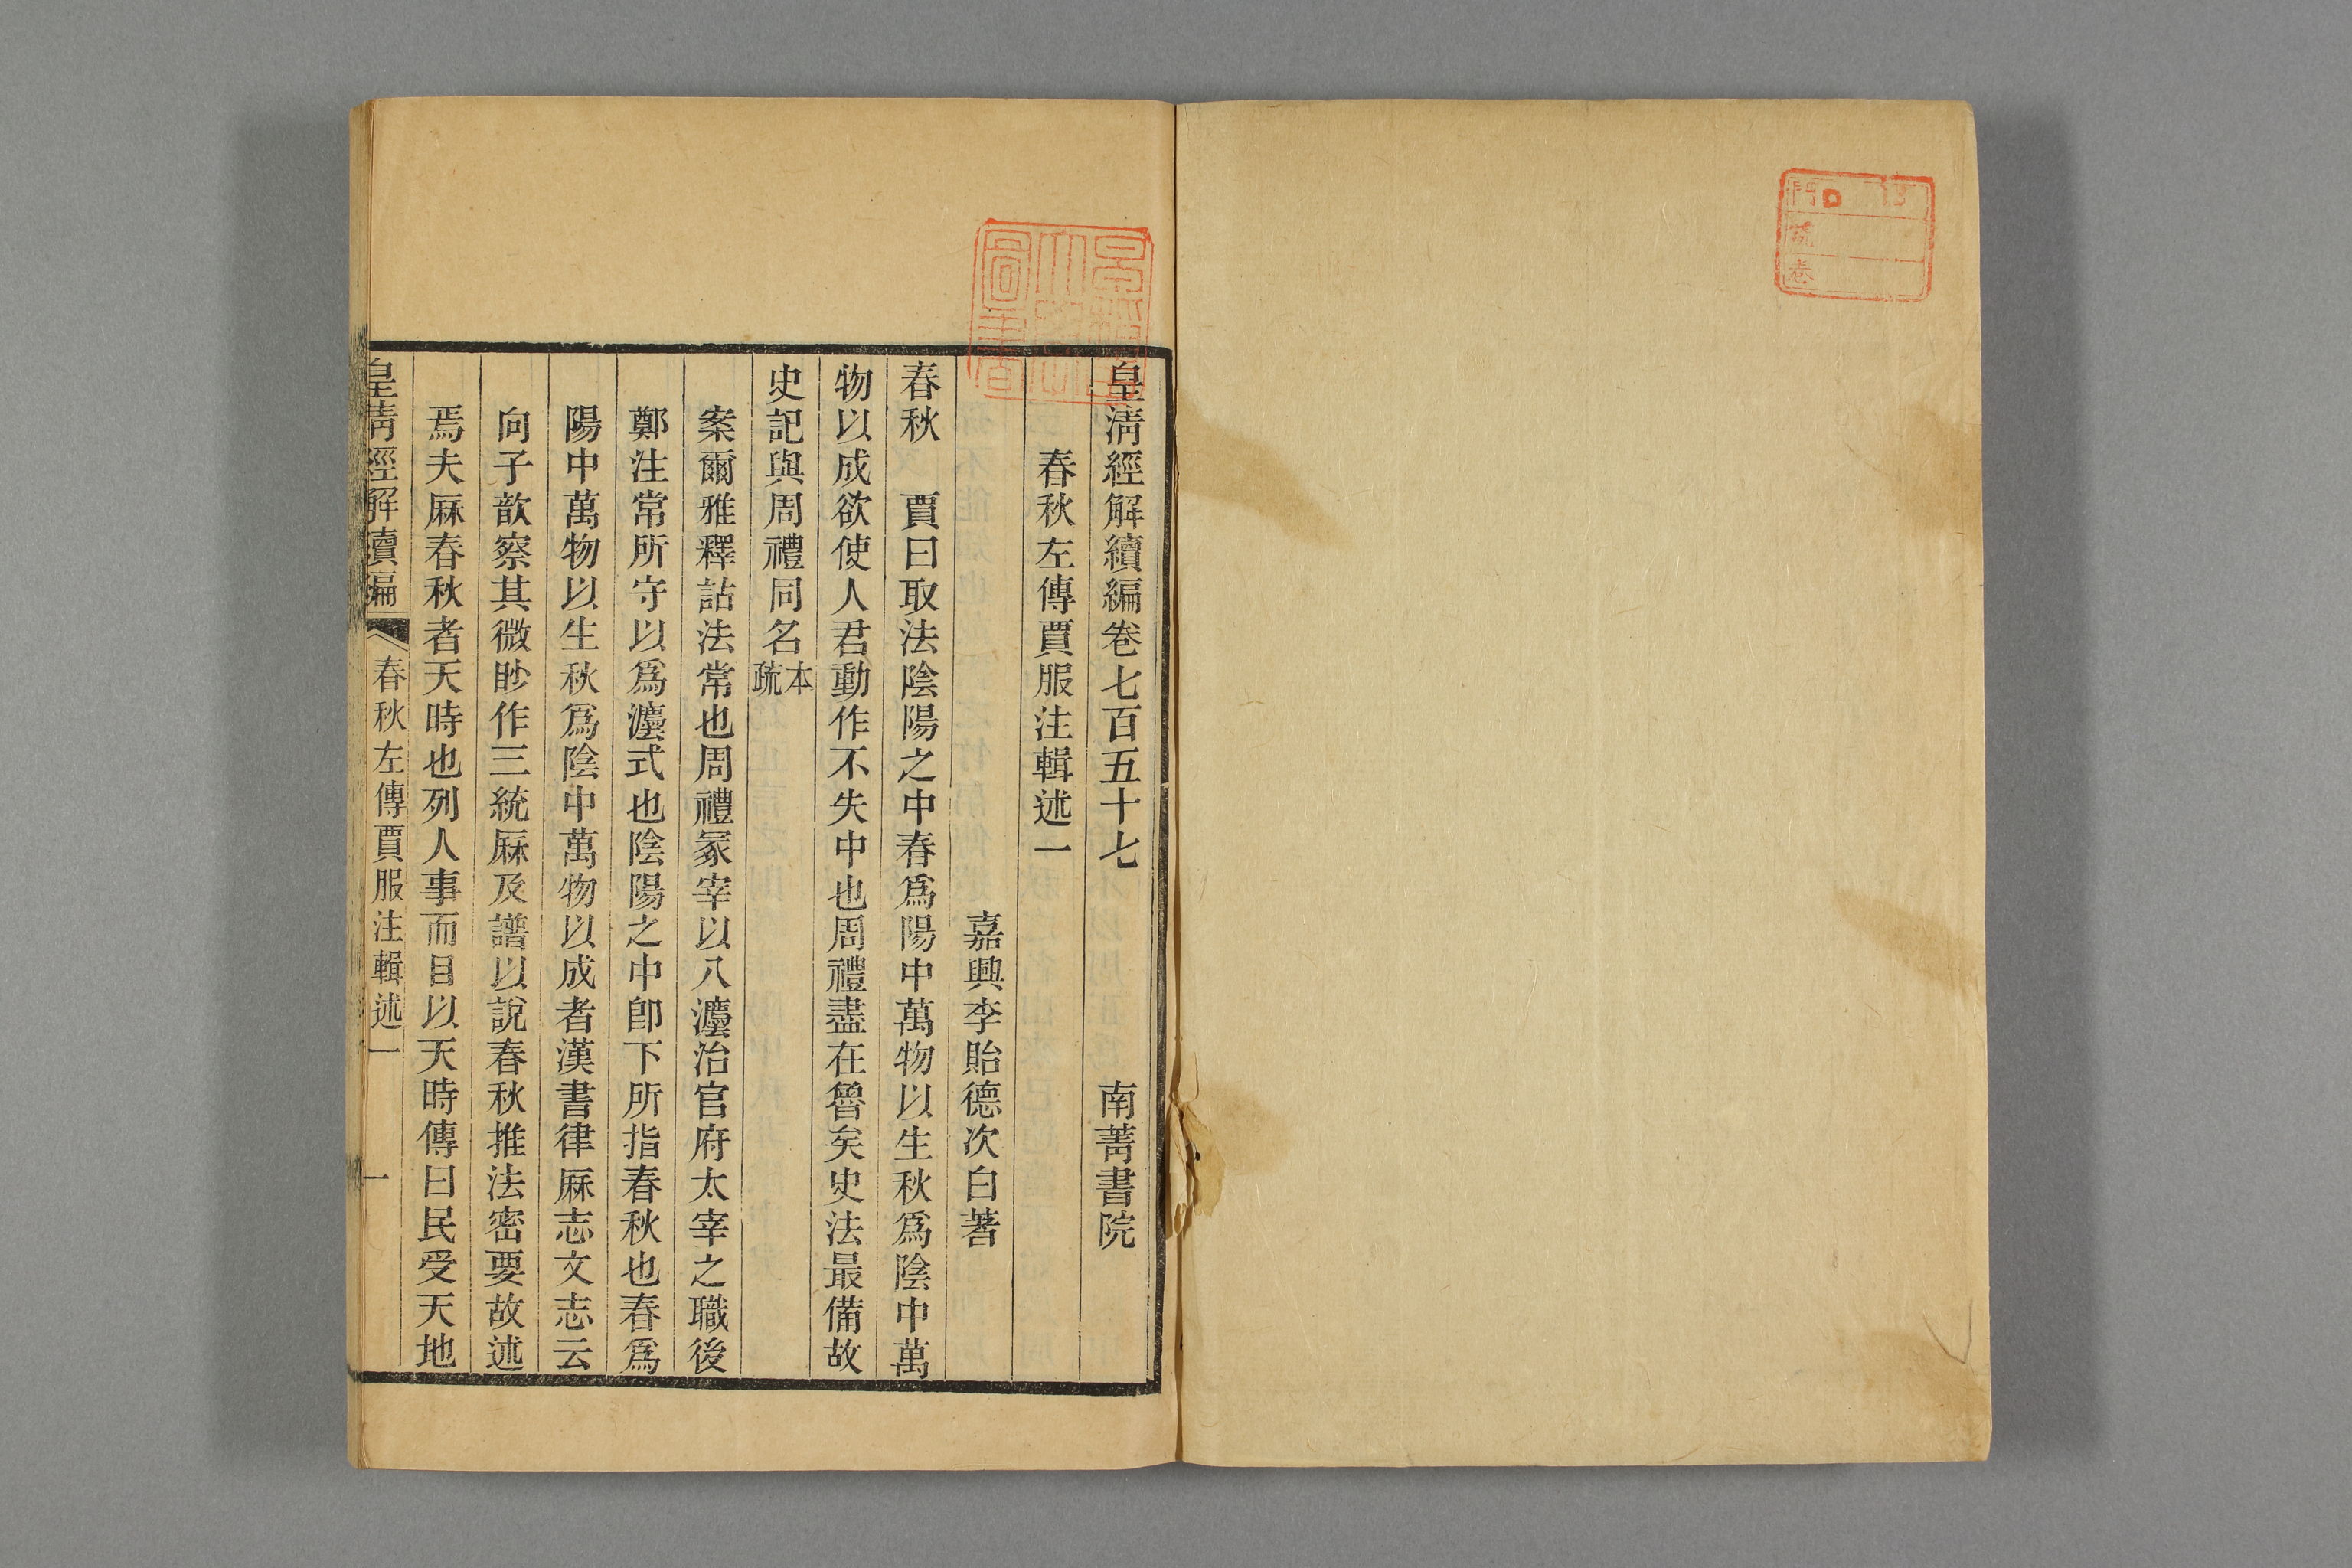 皇清經解續編卷七百五十七 南菁書院
春秋左傳賈服注輯述一
嘉興李貽德次白著
春秋 賈曰取法陰陽之中春爲陽中萬物以生秋爲陰中萬
物以成欲使人君動作不失中也周禮盡在魯矣史法最備故
史記與周禮同名本疏
案爾雅釋詁法常也周禮冡宰以八灋治官府太宰之職後
鄭注常所守以爲灋式也陰陽之中卽下所指春秋也春爲
陽中萬物以生秋爲陰中萬物以成者漢書律厤志文志云
向子歆察其微眇作三統厤及譜以說春秋推法密要故述
焉夫厤春秋者天時也列人事而目以天時傳曰民受天地
皇清經解續編 春秋左傳賈服注輯述一 一
門 號 卷